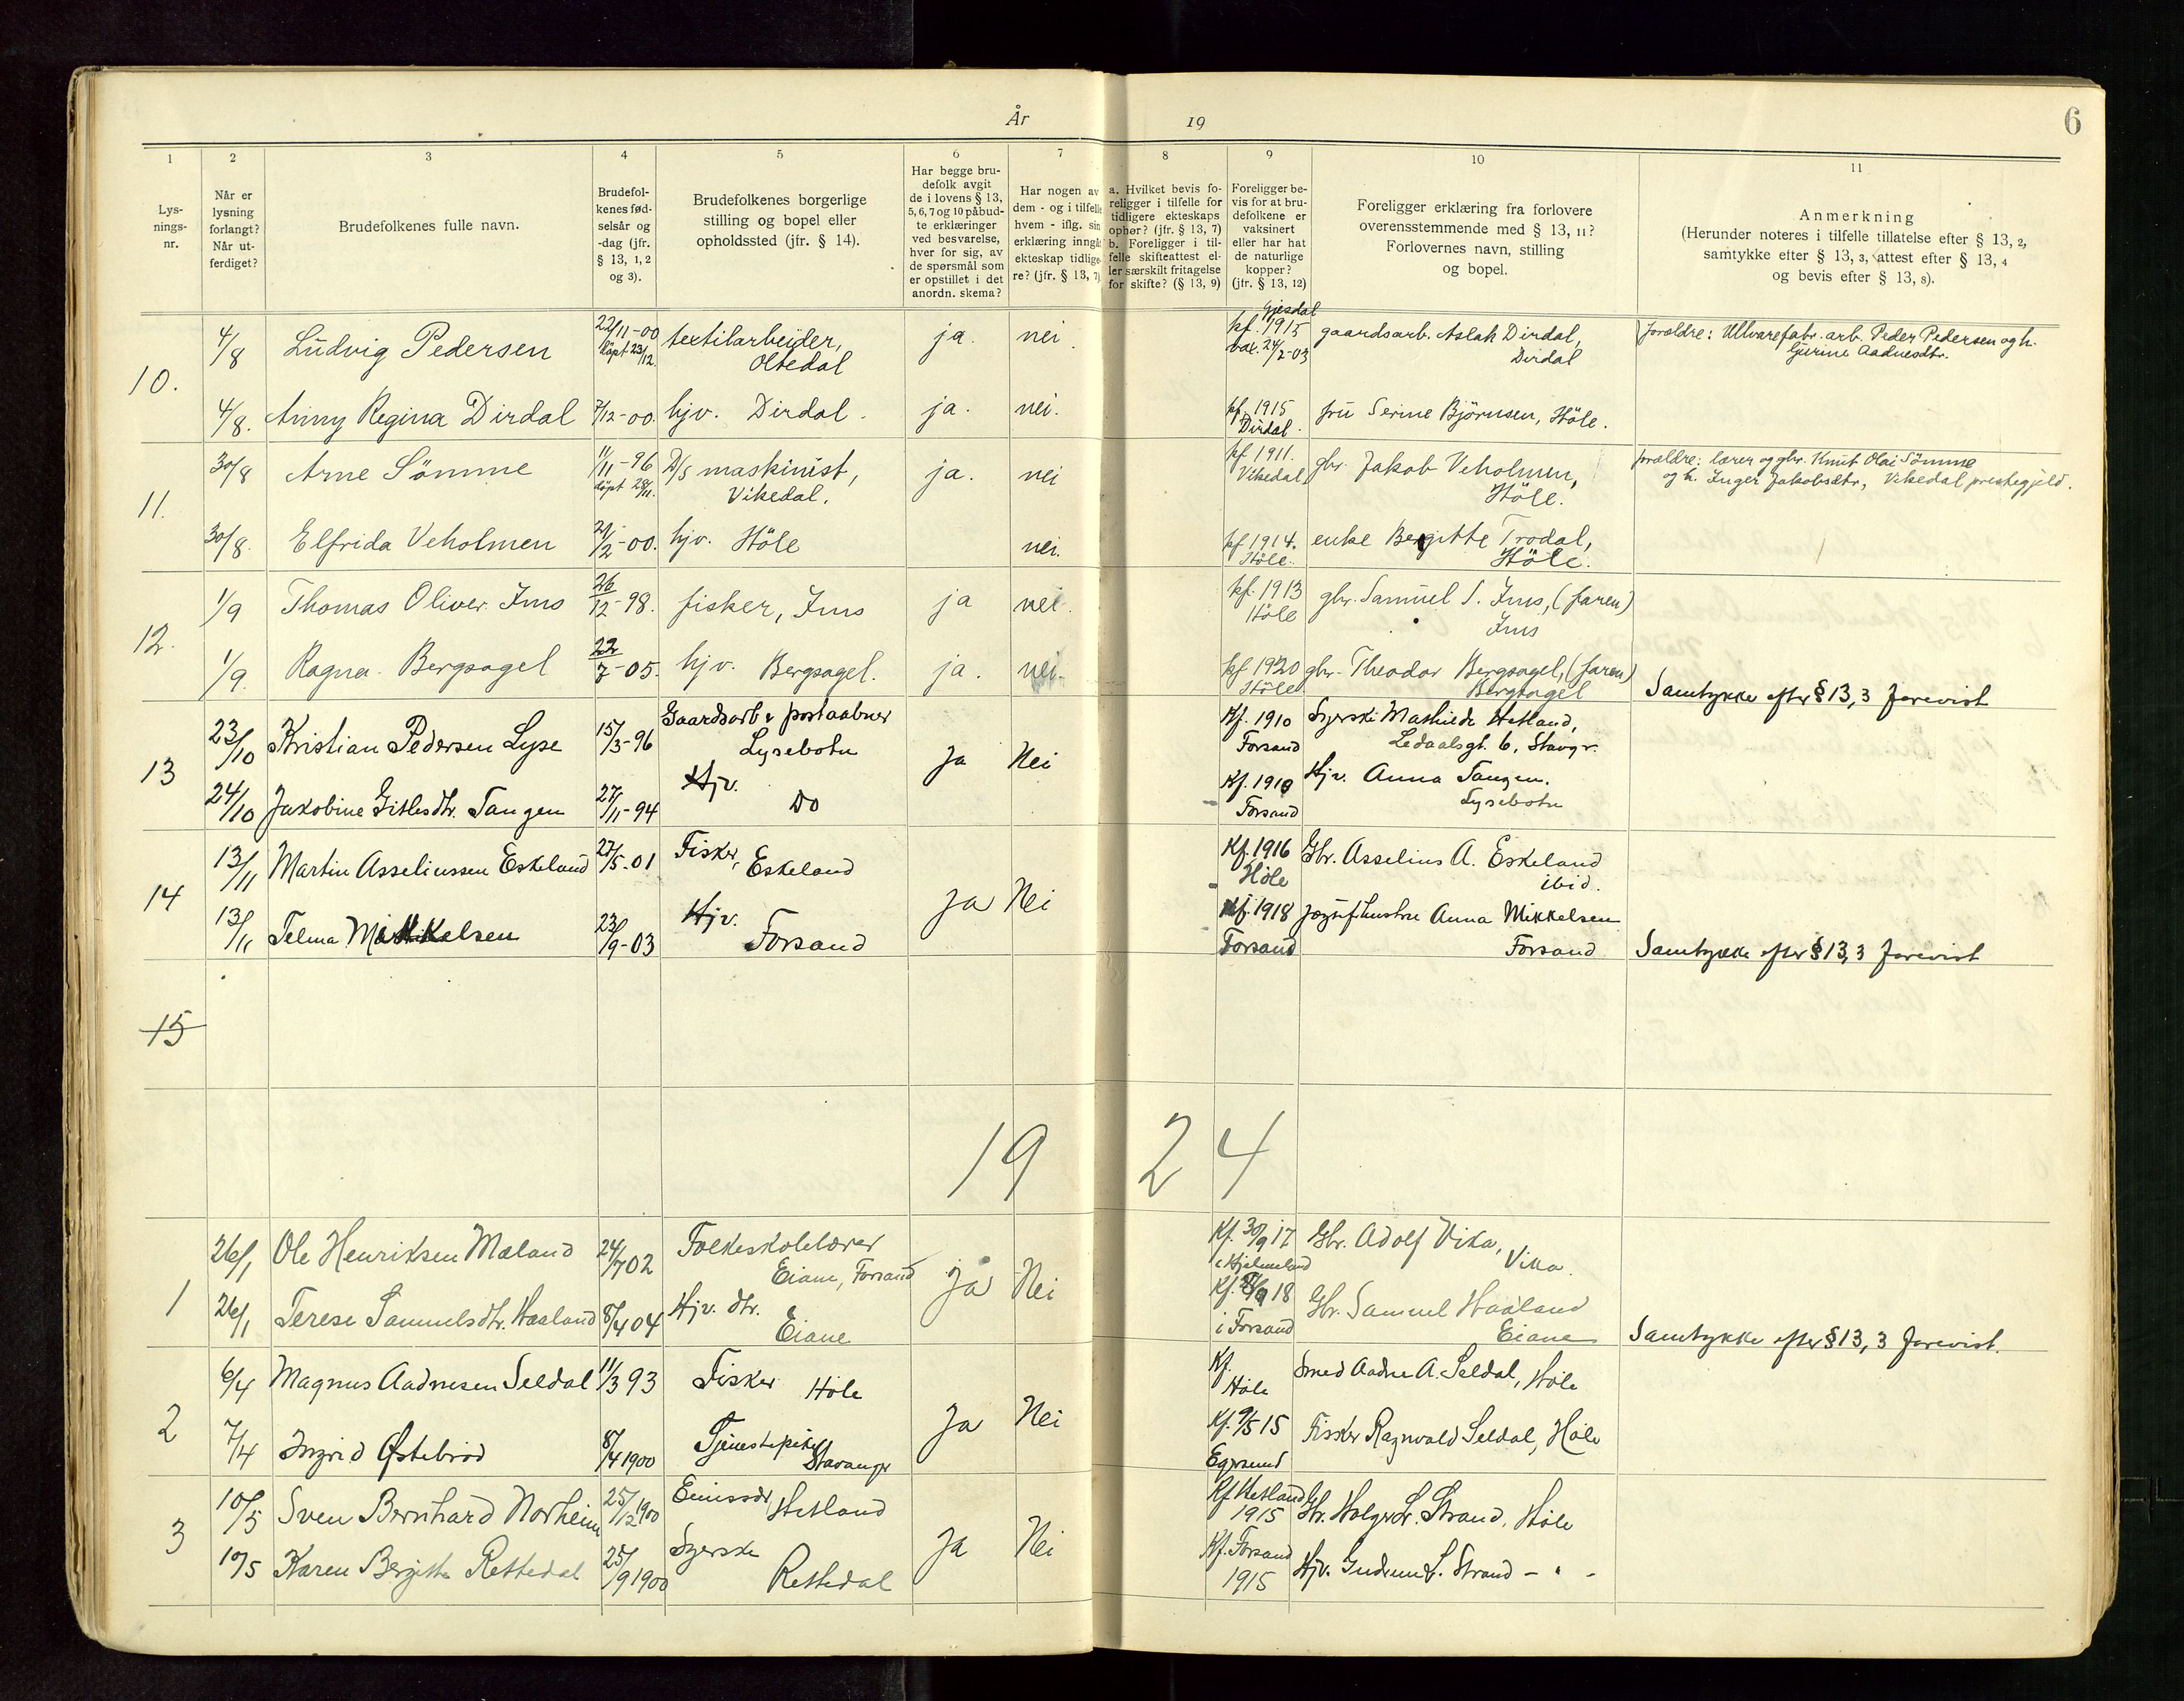 År 19
6
1 2 3 4 5 6 7 8 9 10 11
Lys-
nings-
nr.
Når er
lysning
forlangt?
Når ut-
ferdiget?
Brudefolkenes fulle navn.
Brudefol-
kenes fød-
selsår og
-dag (jfr.
§ 13, 1, 2
og 3).
Brudefolkenes borgerlige
stilling og bopel eller
opholdssted (jfr. § 14).
Har begge bru-
defolk avgit
de i lovens § 13,
5, 6, 7 og 10 påbud-
te erklæringer
ved besvarelse,
hver for sig, av
de spørsmål som
er opstillet i det
anordn. skema?
Har nogen av
dem - og i tilfelle
hvem - iflg. sin
erklæring inngåt
ekteskap tidlige-
re? (jfr. § 13, 7)
a. Hvilket bevis fo-
religger i tilfelle for
tidligere ekteskaps
ophør? (jfr. § 13, 7)
b. Foreligger i til-
felle skifteattest el-
ler særskilt fritagelse
for skifte? (§ 13, 9)
Foreligger be-
vis for at bru-
defolkene er
vaksinert
eller har hat
de naturlige
kopper?
(jfr. § 13, 12)
Foreligger erklæring fra forlovere
overensstemmende med § 13, 11?
Forlovernes navn, stilling
og bopel.
Anmerkning
(Herunder noteres i tilfelle tillatelse efter § 13, 2,
samtykke efter § 13, 3, attest efter § 13, 4
og bevis efter § 13, 8).
10.
4/8 Ludvig Pedersen 22/11-00 døpt 23/12. textilarbeider, Oltedal ja. nei. Gjesdal kf. 1915 vax. 24/2-03 gaardsarb. Aslak Dirdal, Dirdal forældre: Ullvarefabr. arb. Peder Pedersen og h. Gurine Aadnesdtr.
4/8. Anny Regina Dirdal 7/12-00. hjv. Dirdal. ja. nei. kf. 1915 Dirdal. fru Serine Bjørnsen, Höle.
11.
30/8 Arne Sömme 11/11-96 döpt 28/11. D/S maskinist, Vikedal. ja. nei kf 1911. Vikedal gbr. Jakob Veholmen, Höle. forældre: lærer og gbr. Knut Olai Sömme og h. Inger Jakobsdtr, Vikedal prestegjeld.
30/8. Elfrida Veholmen 2/2-00. hjv. Höle nei. kf 1914. Höle. enke Bergitte Trodal, Höle.
12.
1/9 Thomas Oliver Ims 26/12-98. fisker, Ims ja nei. kf. 1913 Höle gbr. Samuel S. Ims, (faren) Ims
1/9. Ragna Bergsagel 22/7-05. hjv. Bergsagel. ja. nei. kf 1920 Höle gbr. Theodor Bergsagel, (faren) Bergsagel Samtykke efter § 13, 3 forevist
13
23/10 Kristian Pedersen Lyse 15/3-96 Gaardsarb & postaabner Lysebotn Ja Nei Kf. 1910 Forsand Syerske Mathilde Hetland, Ledaalsgt. 6, Stavgr.
24/10 Jakobine Gitlesdtr. Tangen 27/11-94 Hjv. Do Kf. 1910 Forsand Hjv. Anna Tangen. Lysebotn
14
13/11 Martin Asseliussen Eskeland 27/5-01 Fisker, Eskeland Ja Nei Kf. 1916 Höle Gbr. Asselius A. Eskeland ibid.
13/11 Telma Mikkelsen 23/9-03 Hjv. Forsand Kf. 1918 Forsand Anna Mikkelsen Forsand Samtykke efter § 13, 3 forevist
15
19 24
1
26/1 Ole Henriksen Mæland 24/7 02 Folkeskolelærer Eiane, Forsand Ja Nei Kf. 30/9 17 i Hjelmeland Gbr. Adolf Vika, Vika.
26/1 Terese Samuelsdtr. Haaland 8/4 04 Hjv. dtr. Eiane Kf. 18 i Forsand Gbr. Samuel Haaland Eiane Samtykke efter § 13, 3 forevist.
2
6/4 Magnus Aadnesen Seldal 11/3 93 Fisker Höle Ja Nei Kf. Höle Smed Aadne A. Seldal, Höle
7/4 Ingrid Østebrød 8/4 1900 Tjenestepike Stavanger Kf. 9/5 15 Egersund Fisker Ragnvald Seldal, Höle
3
10/5 Sven Bernhard Norheim 25/12 1900 Emissær, Hetland Ja Nei Kf Hetland 1915 Gbr. Holger L. Strand, Höle
10/5 Karen Bergitte Rettedal 25/9 1900 Syerske Rettedal Kf. Forsand 1915 Hjv. Gudrun L. Strand - " -